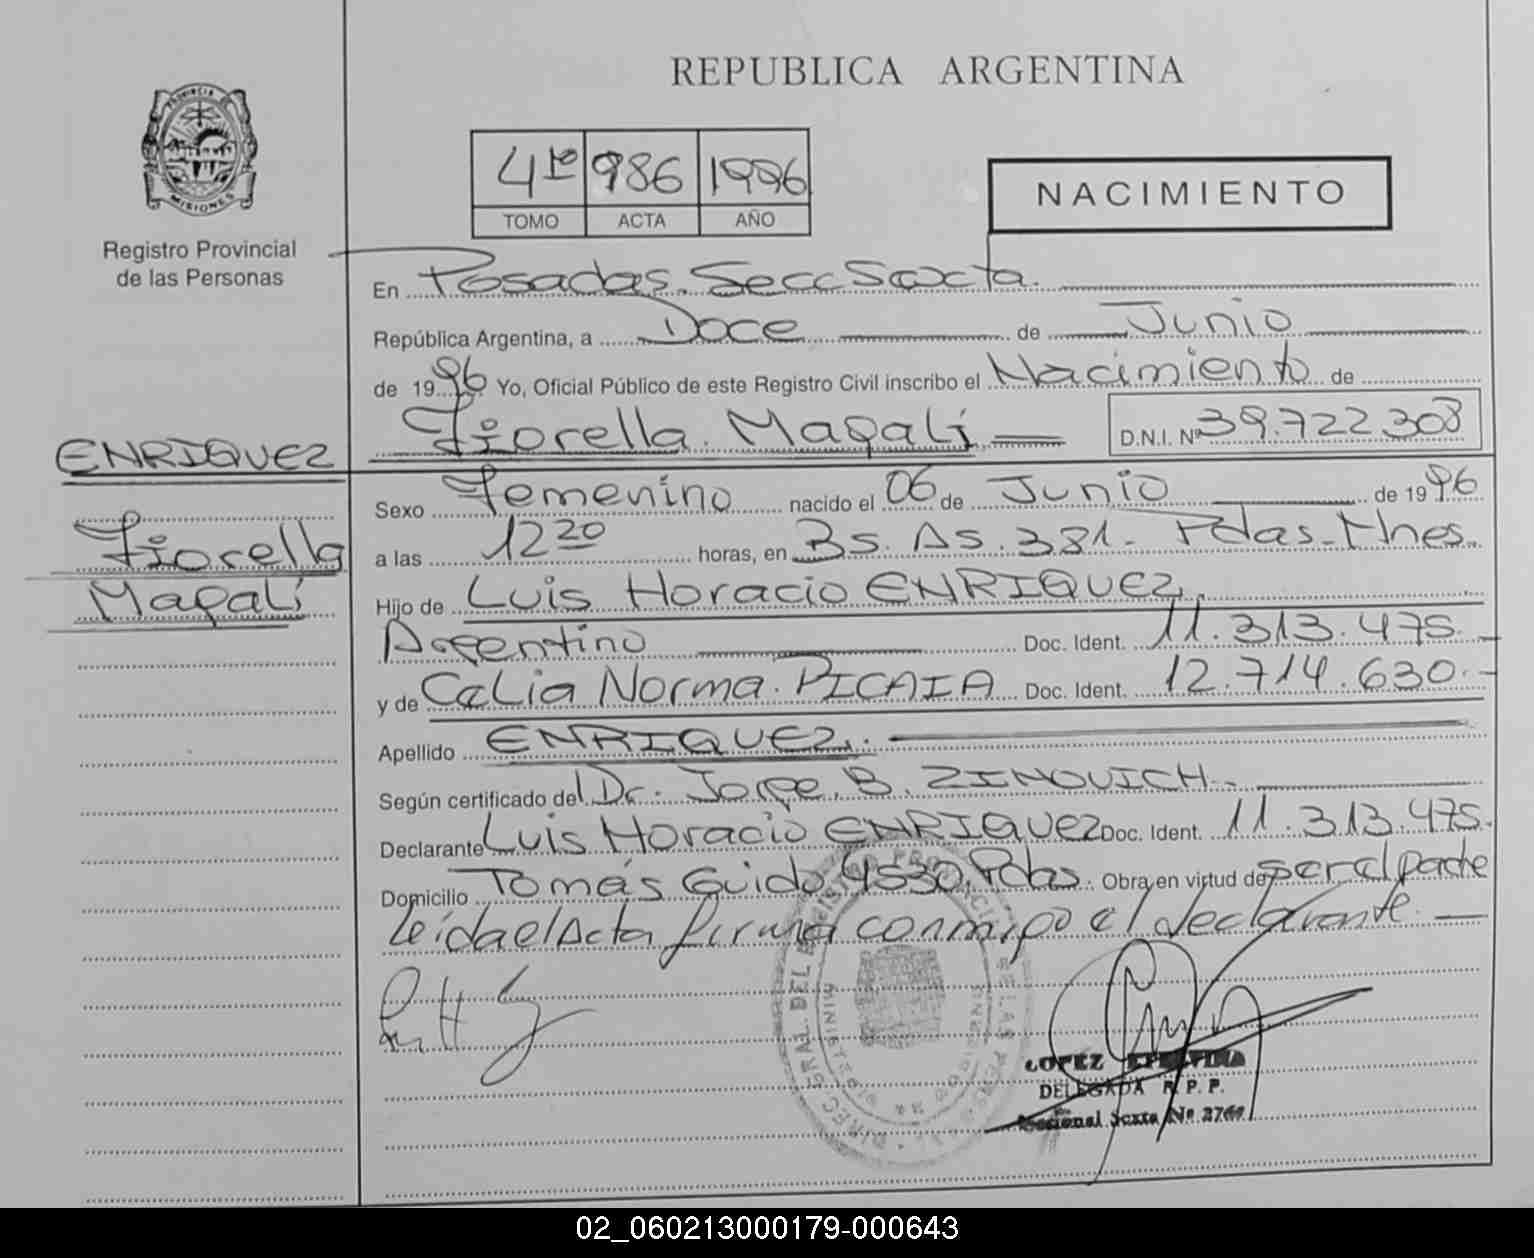 REPUBLICA ARGENTINA
PROVINCIA DE
MISIONES
Registro Provincial
de las Personas
4to 986 1996
TOMO ACTA AÑO
NACIMIENTO
En Posadas. Secc Sexta.
República Argentina, a Doce de Junio
de 1996 Yo, Oficial Público de este Registro Civil inscribo el Nacimiento de
Fiorella Magalí D.N.I. Nº 39.722.308
ENRIQUEZ
Fiorella
Magalí
Sexo Femenino nacido el 06 de Junio de 1996
a las 12 20 horas, en Bs. As. 381- Pdas-Mnes.
Hijo de Luis Horacio ENRIQUEZ,
Argentino Doc. Ident. 11.313.475.
y de Celia Norma PICAIA Doc. Ident. 12.714.630.-
Apellido ENRIQUEZ.
Según certificado del Dr. Jorge B. ZINOVICH-
Declarante Luis Horacio ENRIQUEZ Doc. Ident. 11.313.475.
Domicilio Tomás Guido 4530, Pdas. Obra en virtud de ser el padre
leída el Acta firma conmigo el declarante.
LOPEZ
DELEGADA R. P. P.
Seccional Sexta Nº
02_060213000179-000643